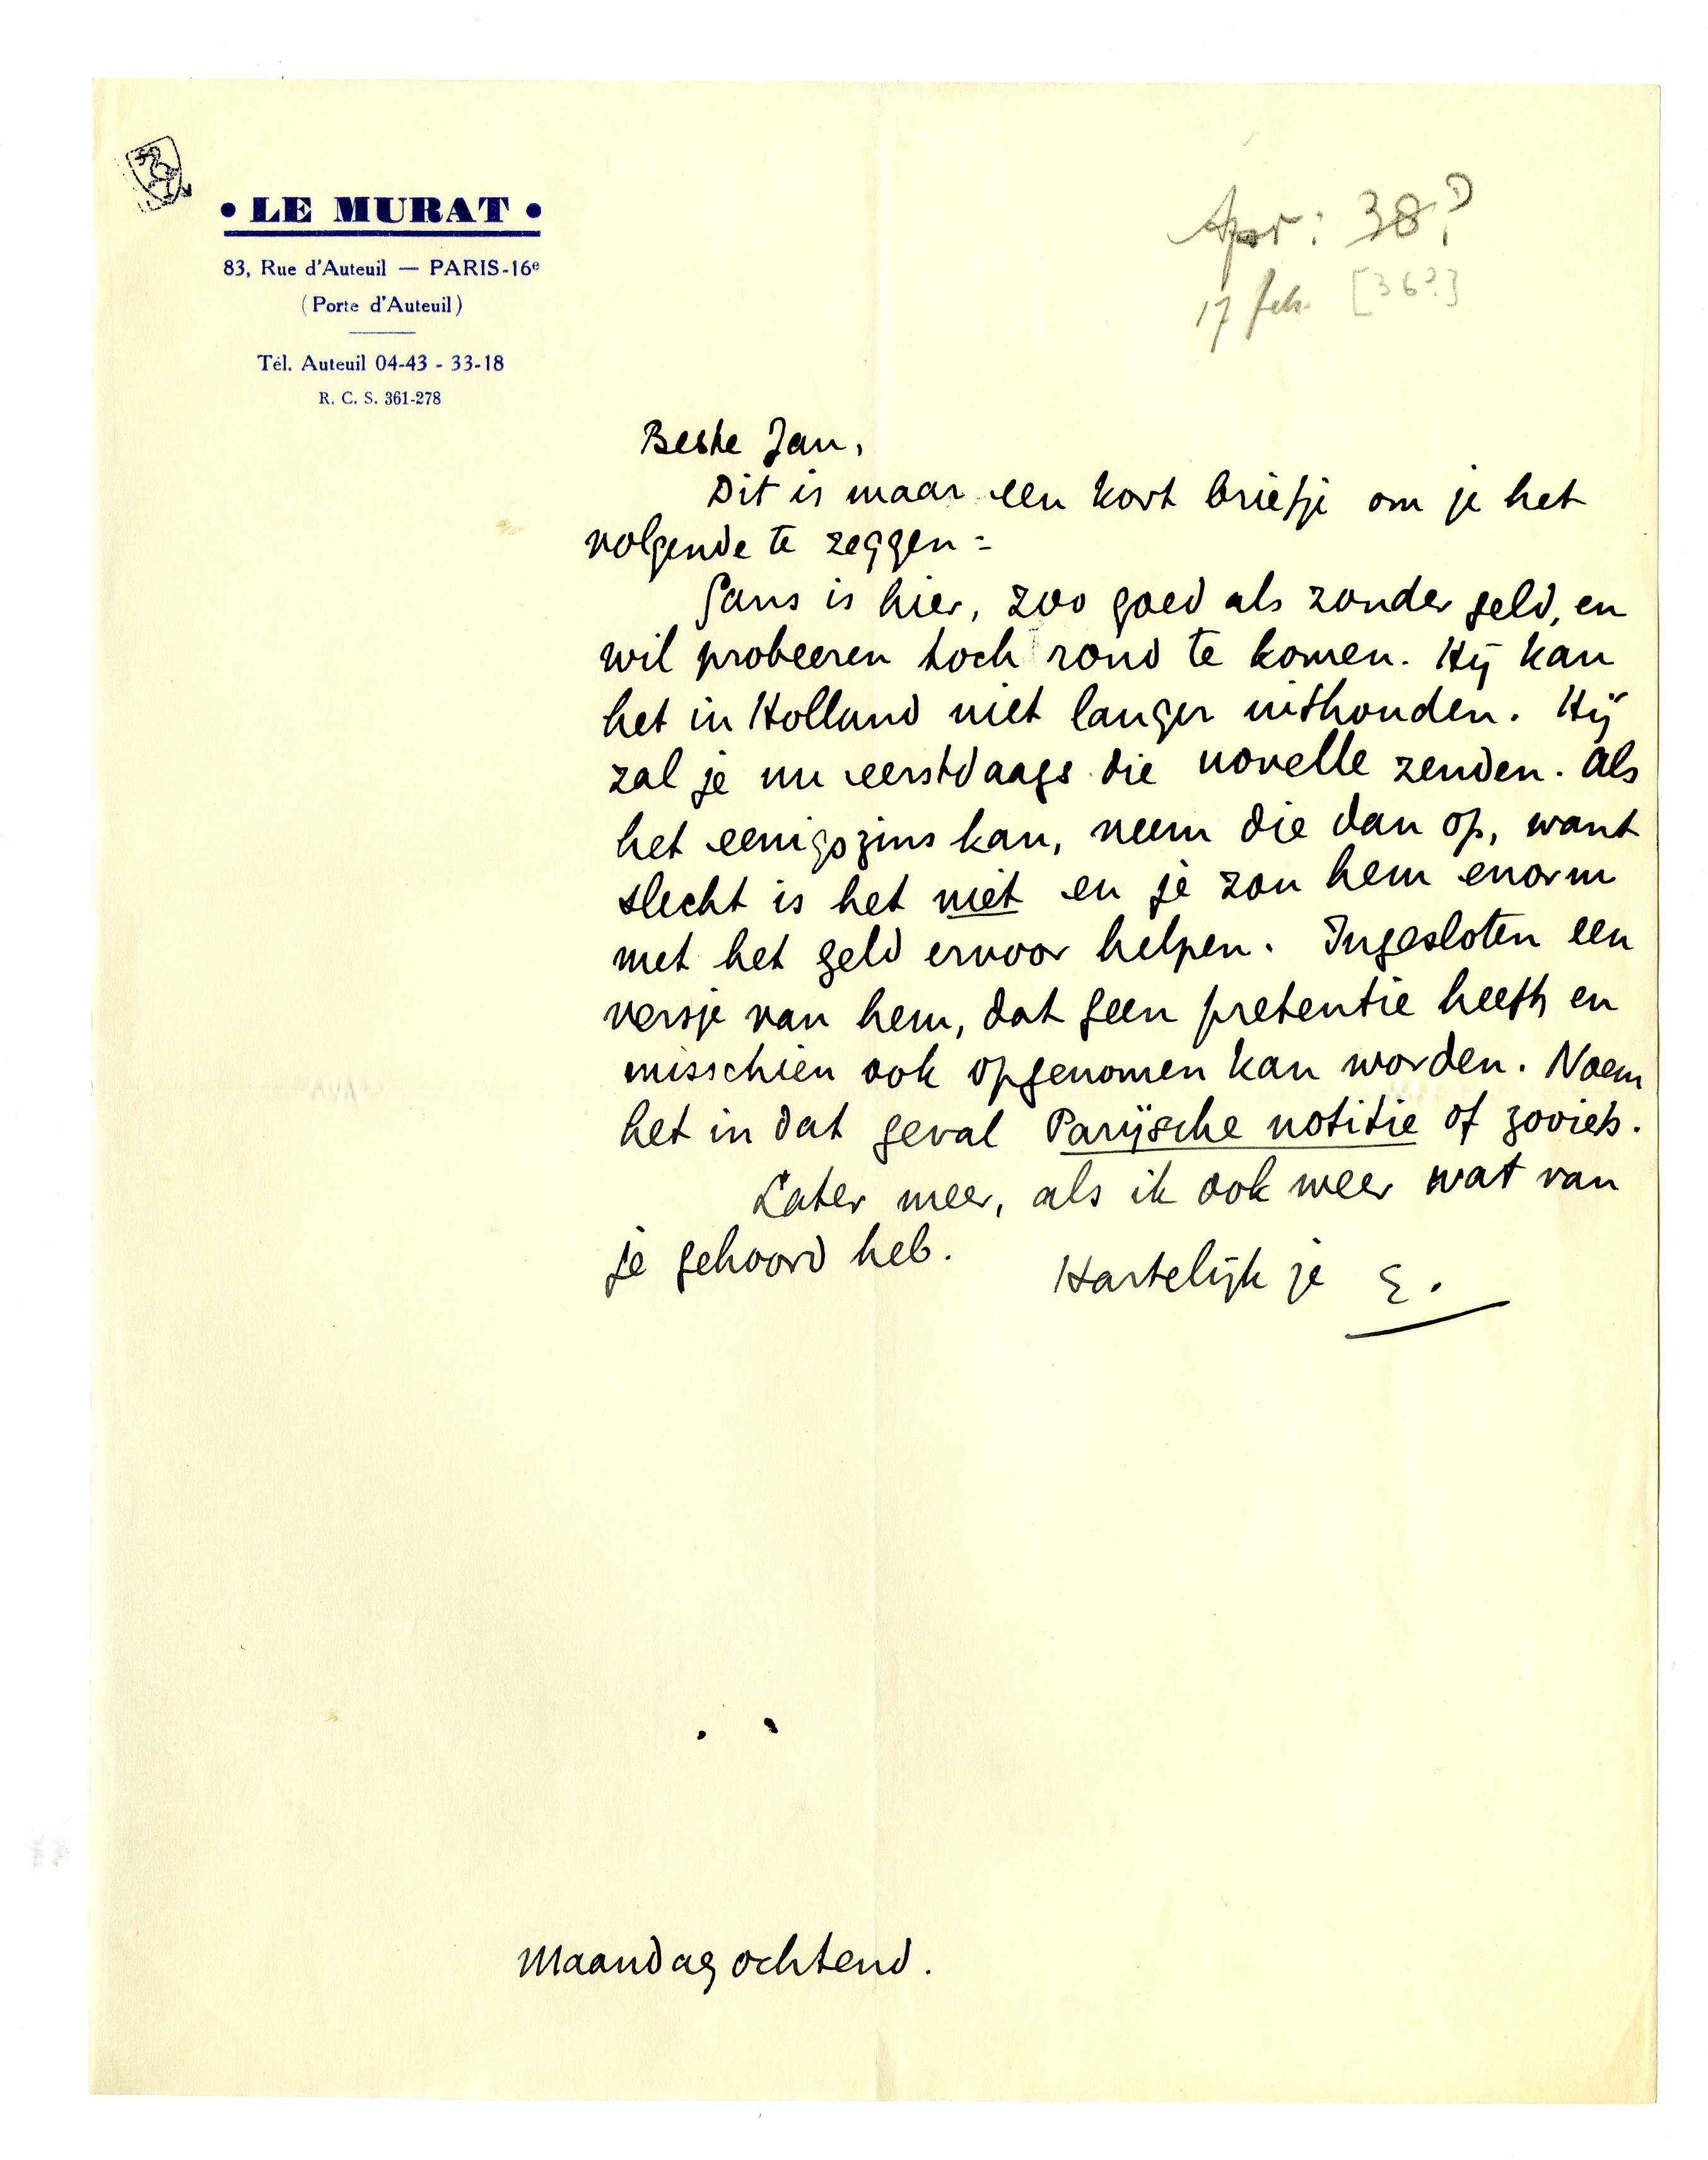 • LE MURAT •
83, Rue d'Auteuil — PARIS-16e
(Porte d'Auteuil)
Tél. Auteuil 04-43 - 33-18
R. C. S. 361-278
Apr: 38?
17 feb. [36?]
Beste Jan,
Dit is maar een kort briefje om je het
volgende te zeggen:
Gans is hier, zoo goed als zonder geld, en
wil probeeren toch rond te komen. Hij kan
het in Holland niet langer uithouden. Hij
zal je nu eerstdaags die novelle zenden. Als
het eenigszins kan, neem die dan op, want
slecht is het niet en je zou hem enorm
met het geld ervoor helpen. Ingesloten een
versje van hem, dat geen pretentie heeft en
misschien ook opgenomen kan worden. Noem
het in dat geval Parijsche notitie of zoviets.
Later meer, als ik ook weer wat van
je gehoord heb.
Hartelijk je E.
Maandagochtend.